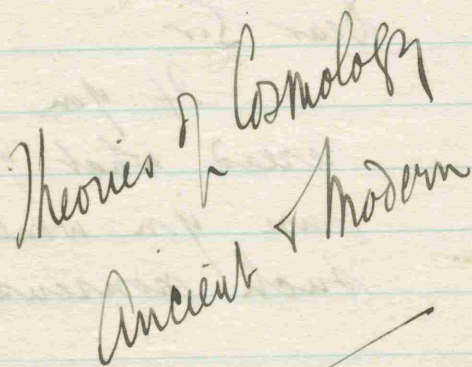 Theories of Cosmology
Ancient & Modern